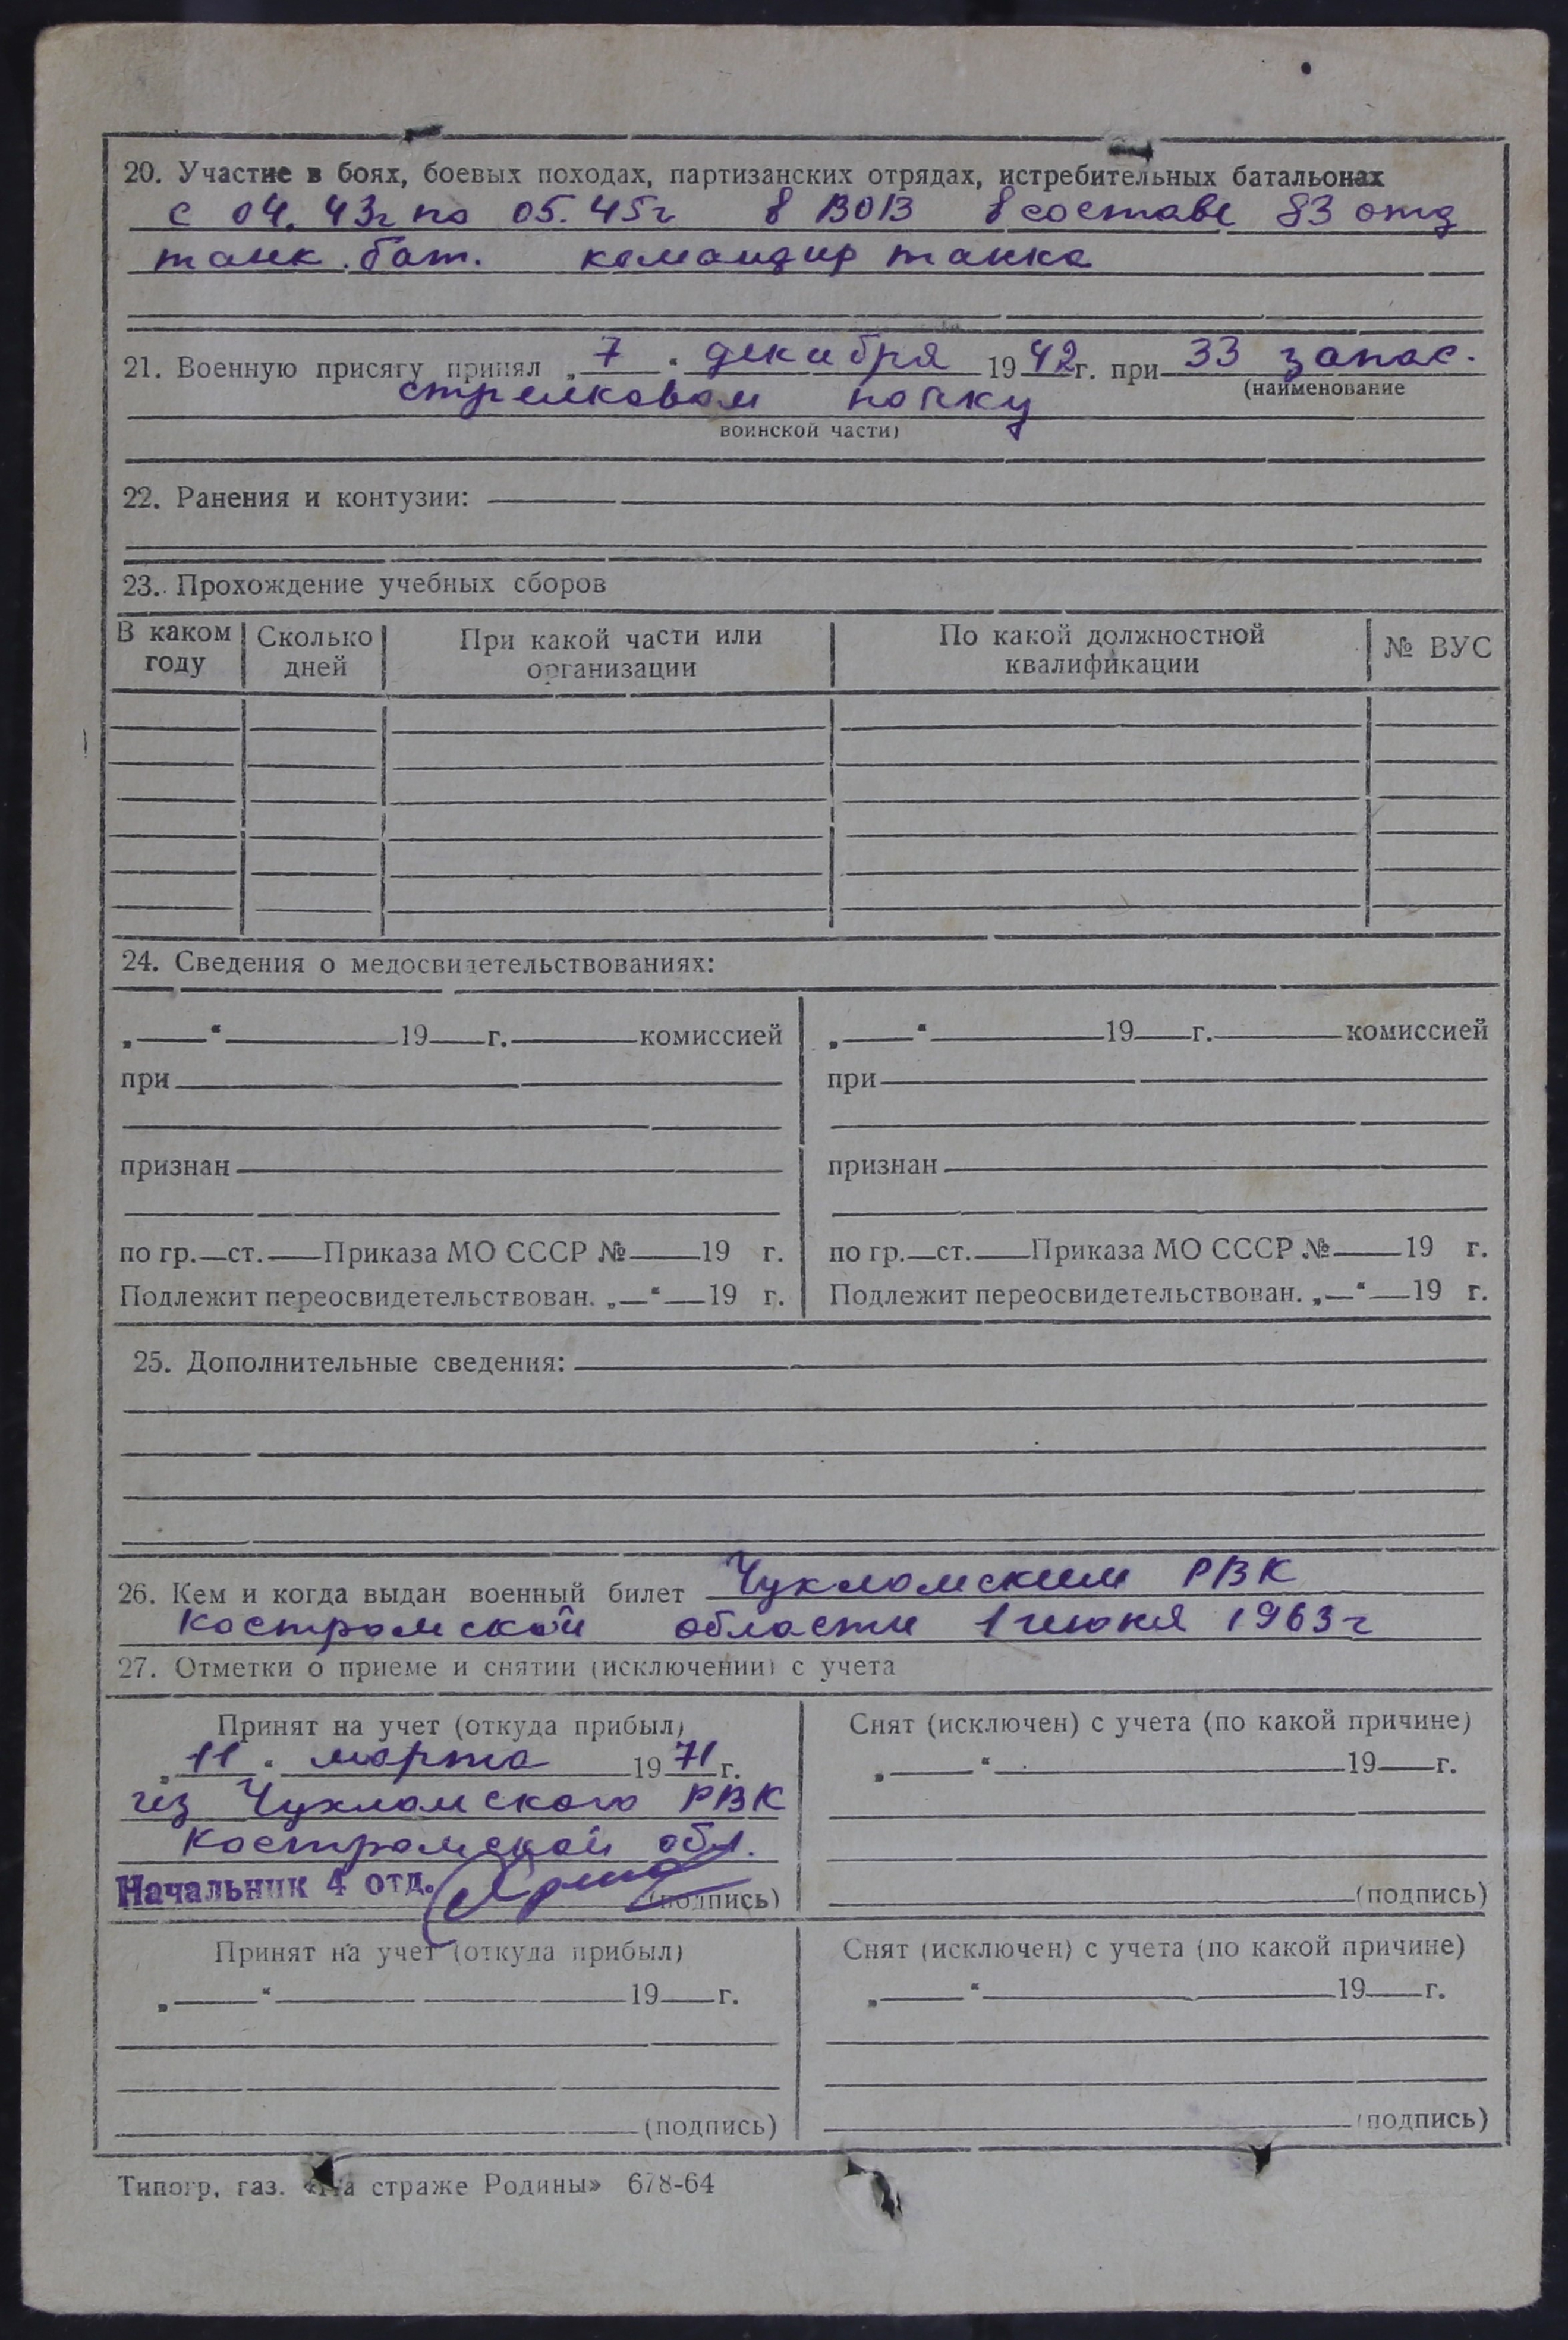 20. Участие в боях, боевых походах, партизанских отрядах, истребительных батальонах
с 04. 43г по 05. 45г в ВОВ в составе 83 отд
танк. бат. командир танка
21. Военную присягу принял „7“ декабря 1942г. при 33 запас.
(наименование
стрелковом полку
воинской части)
22. Ранения и контузии:
23. Прохождение учебных сборов
В каком году | Сколько дней | При какой части или организации | По какой должностной квалификации | № ВУС
24. Сведения о медосвидетельствованиях:
„ “ 19 г. комиссией
при
признан
по гр. ст. Приказа МО СССР № 19 г.
Подлежит переосвидетельствован. „ “ 19 г.
„ “ 19 г. комиссией
при
признан
по гр. ст. Приказа МО СССР № 19 г.
Подлежит переосвидетельствован. „ “ 19 г.
25. Дополнительные сведения:
26. Кем и когда выдан военный билет Чухломским РВК
Костромской области 1 июня 1963г
27. Отметки о приеме и снятии (исключении) с учета
Принят на учет (откуда прибыл)
„11“ марта 1971г.
из Чухломского РВК
Костромской обл.
Начальник 4 отд.
(подпись)
Снят (исключен) с учета (по какой причине)
„ “ 19 г.
(подпись)
Принят на учет (откуда прибыл)
„ “ 19 г.
(подпись)
Снят (исключен) с учета (по какой причине)
„ “ 19 г.
(подпись)
Типогр. газ. «На страже Родины» 678-64